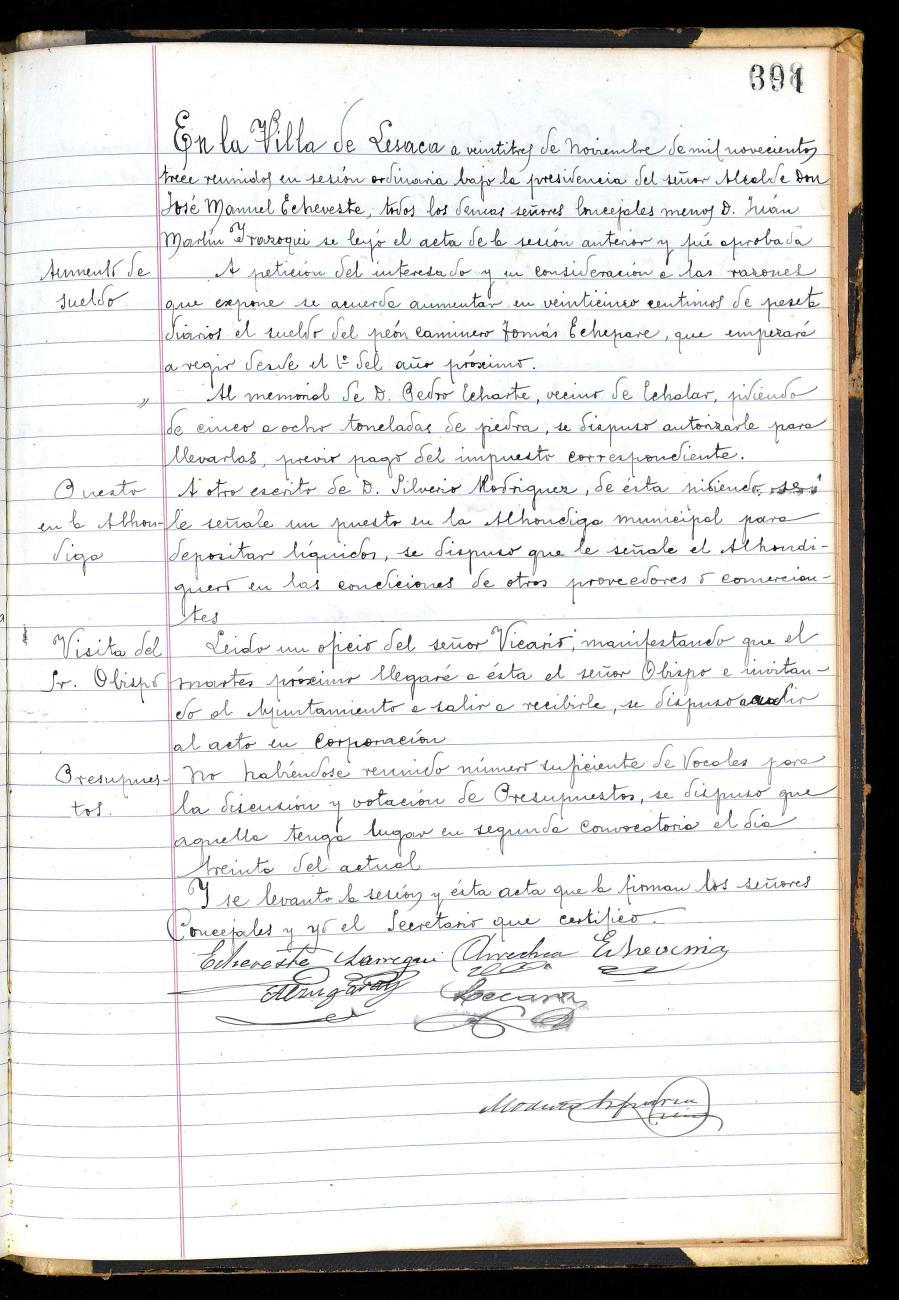 En la Villa de Lesaca a veintitres de Noviembre de mil novecientos
trece reunidos en sesión ordinaria bajo la presidencia del señor Alcalde Don
José Manuel Echeveste, todos los demas señores Concejales menos D. Juán
Martín Irazoqui se leyó el acta de la sesión anterior y fué aprobada
Aumento de
sueldo
A petición del interesado y en consideración a las razones
que expone se acuerda aumentar en veinticinco centimos de peseta
diarios el sueldo del peón caminero Tomás Echepare, que empezará
a regir desde el 1º del año próximo.
"
Al memorial de D. Pedro Echarte, vecino de Echalar, pidiendo
de cinco a ocho toneladas de piedra, se dispuso autorizarle para
llevarlas, previo pago del impuesto correspondiente.
Puesto
en la Alhon-
diga
A otro escrito de D. Silverio Rodriguez, de ésta pidiendo, se
le señale un puesto en la Alhondiga municipal para
depositar líquidos, se dispuso que le señale el Alhondi-
guero en las condiciones de otros proveedores o comercian-
tes
Visita del
Sr. Obispo
Leido un oficio del señor Vicario, manifestando que el
martes próximo llegará a ésta el señor Obispo e invitan-
do al Ayuntamiento a salir a recibirle, se dispuso acudir
al acto en corporación
Presupues-
tos.
No habiéndose reunido número suficiente de Vocales para
la discusión y votación de Presupuestos, se dispuso que
aquella tenga lugar en segunda convocatoria el dia
treinta del actual
Y se levanto la sesión y ésta acta que la firman los señores
Concejales y yó el Secretario que certifico.
Echeveste Larregui Arrechea Echeverria